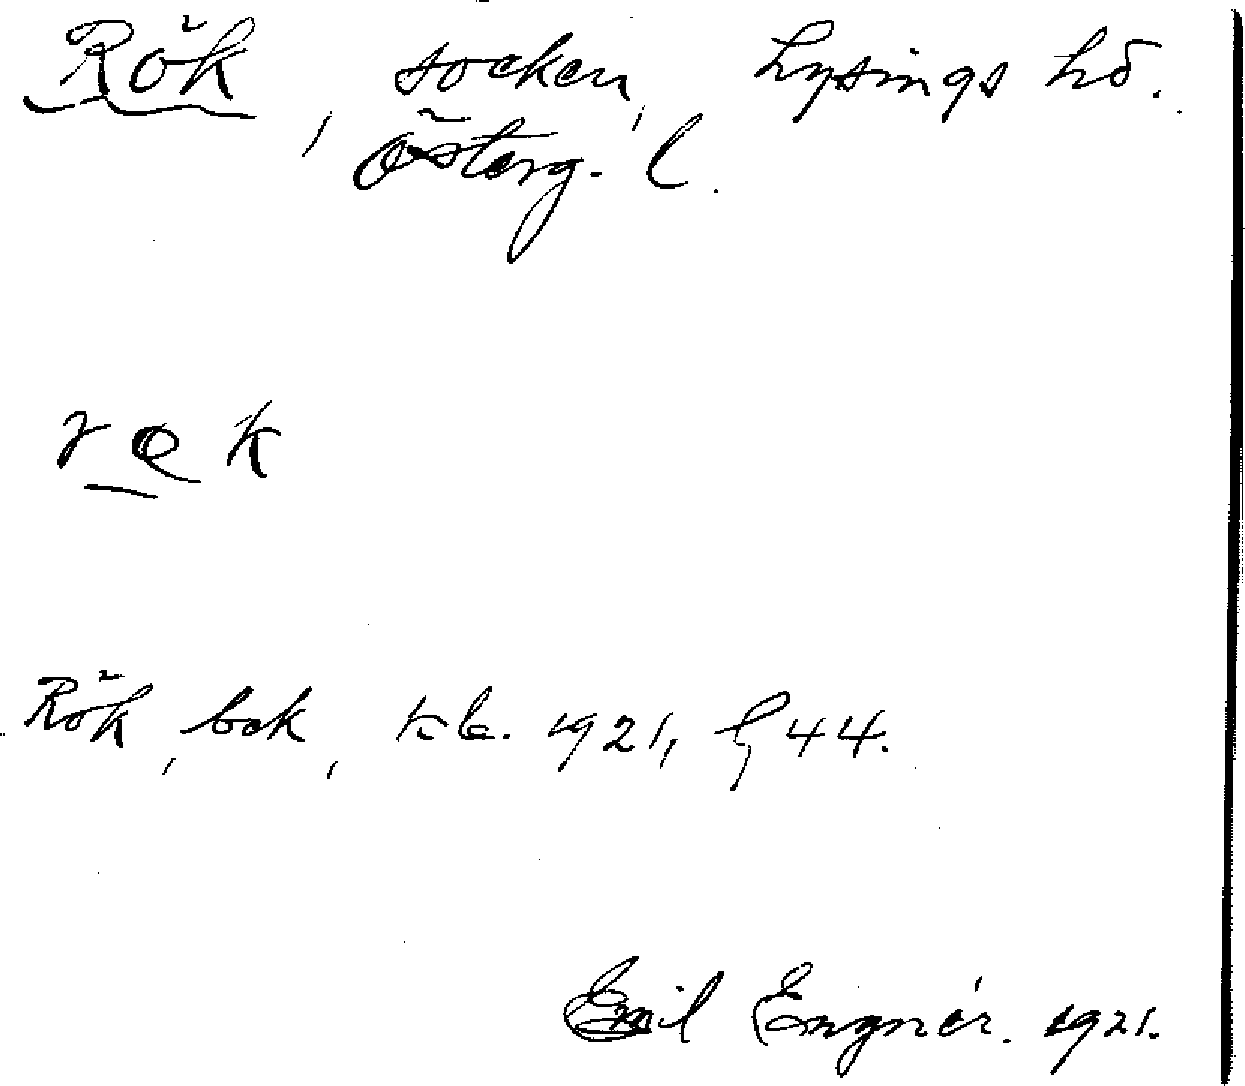 Rök, socken, Lysings hd.
Österg. l.
r k
Rök, bok, 1921, 44.
Emil Engnér. 1921.